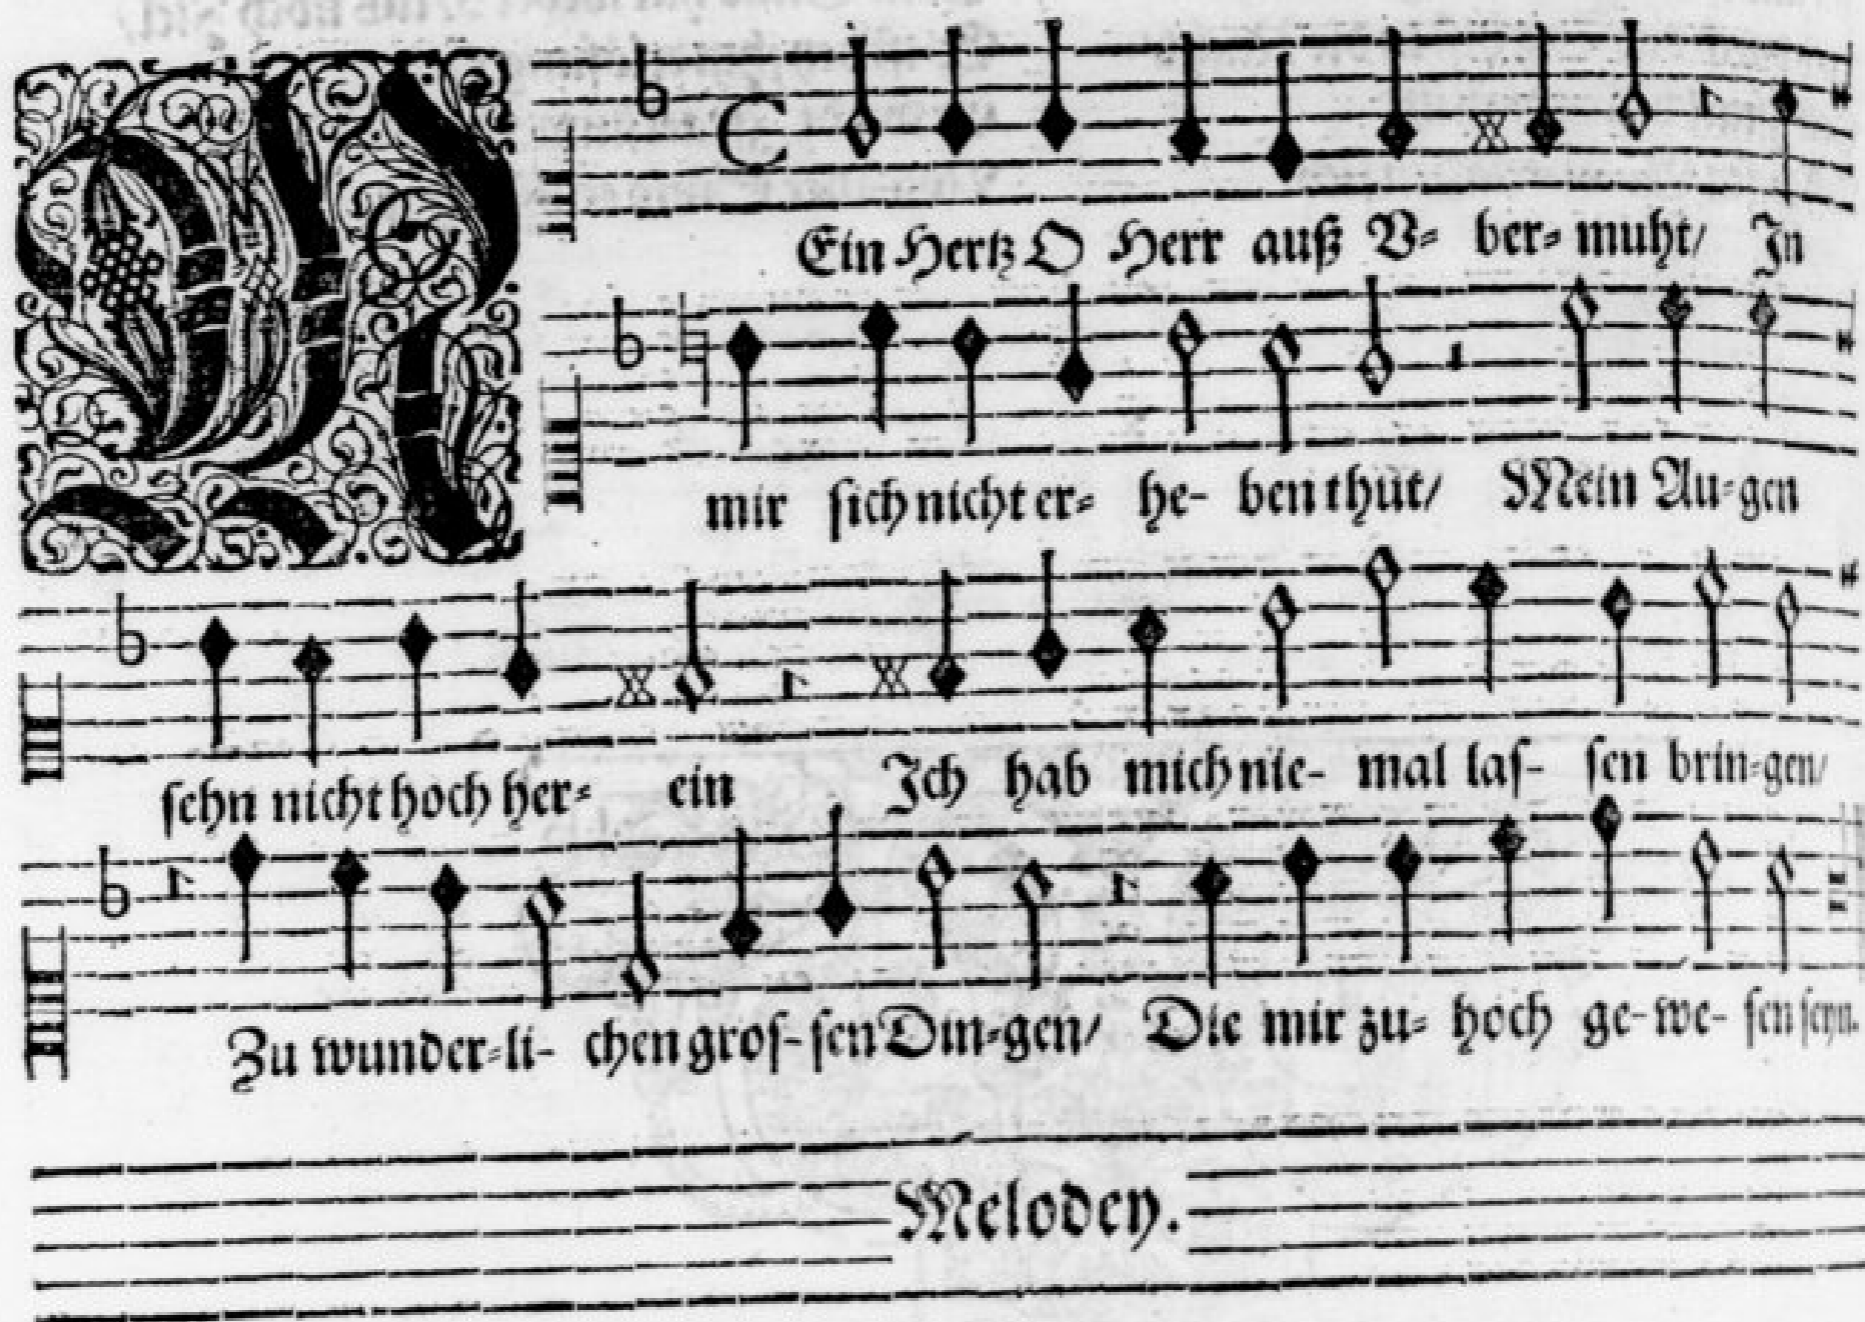 MEin Hertz O Herr auß V- ber- muht/ In
mir sich nicht er- he- ben thut/ Mein Au-gen
sehn nicht hoch her- ein Ich hab mich nie- mal las- sen brin-gen/
Zu wunder-li- chen gros-sen Din-gen/ Die mir zu- hoch ge-we- sen seyn.
Melodey.